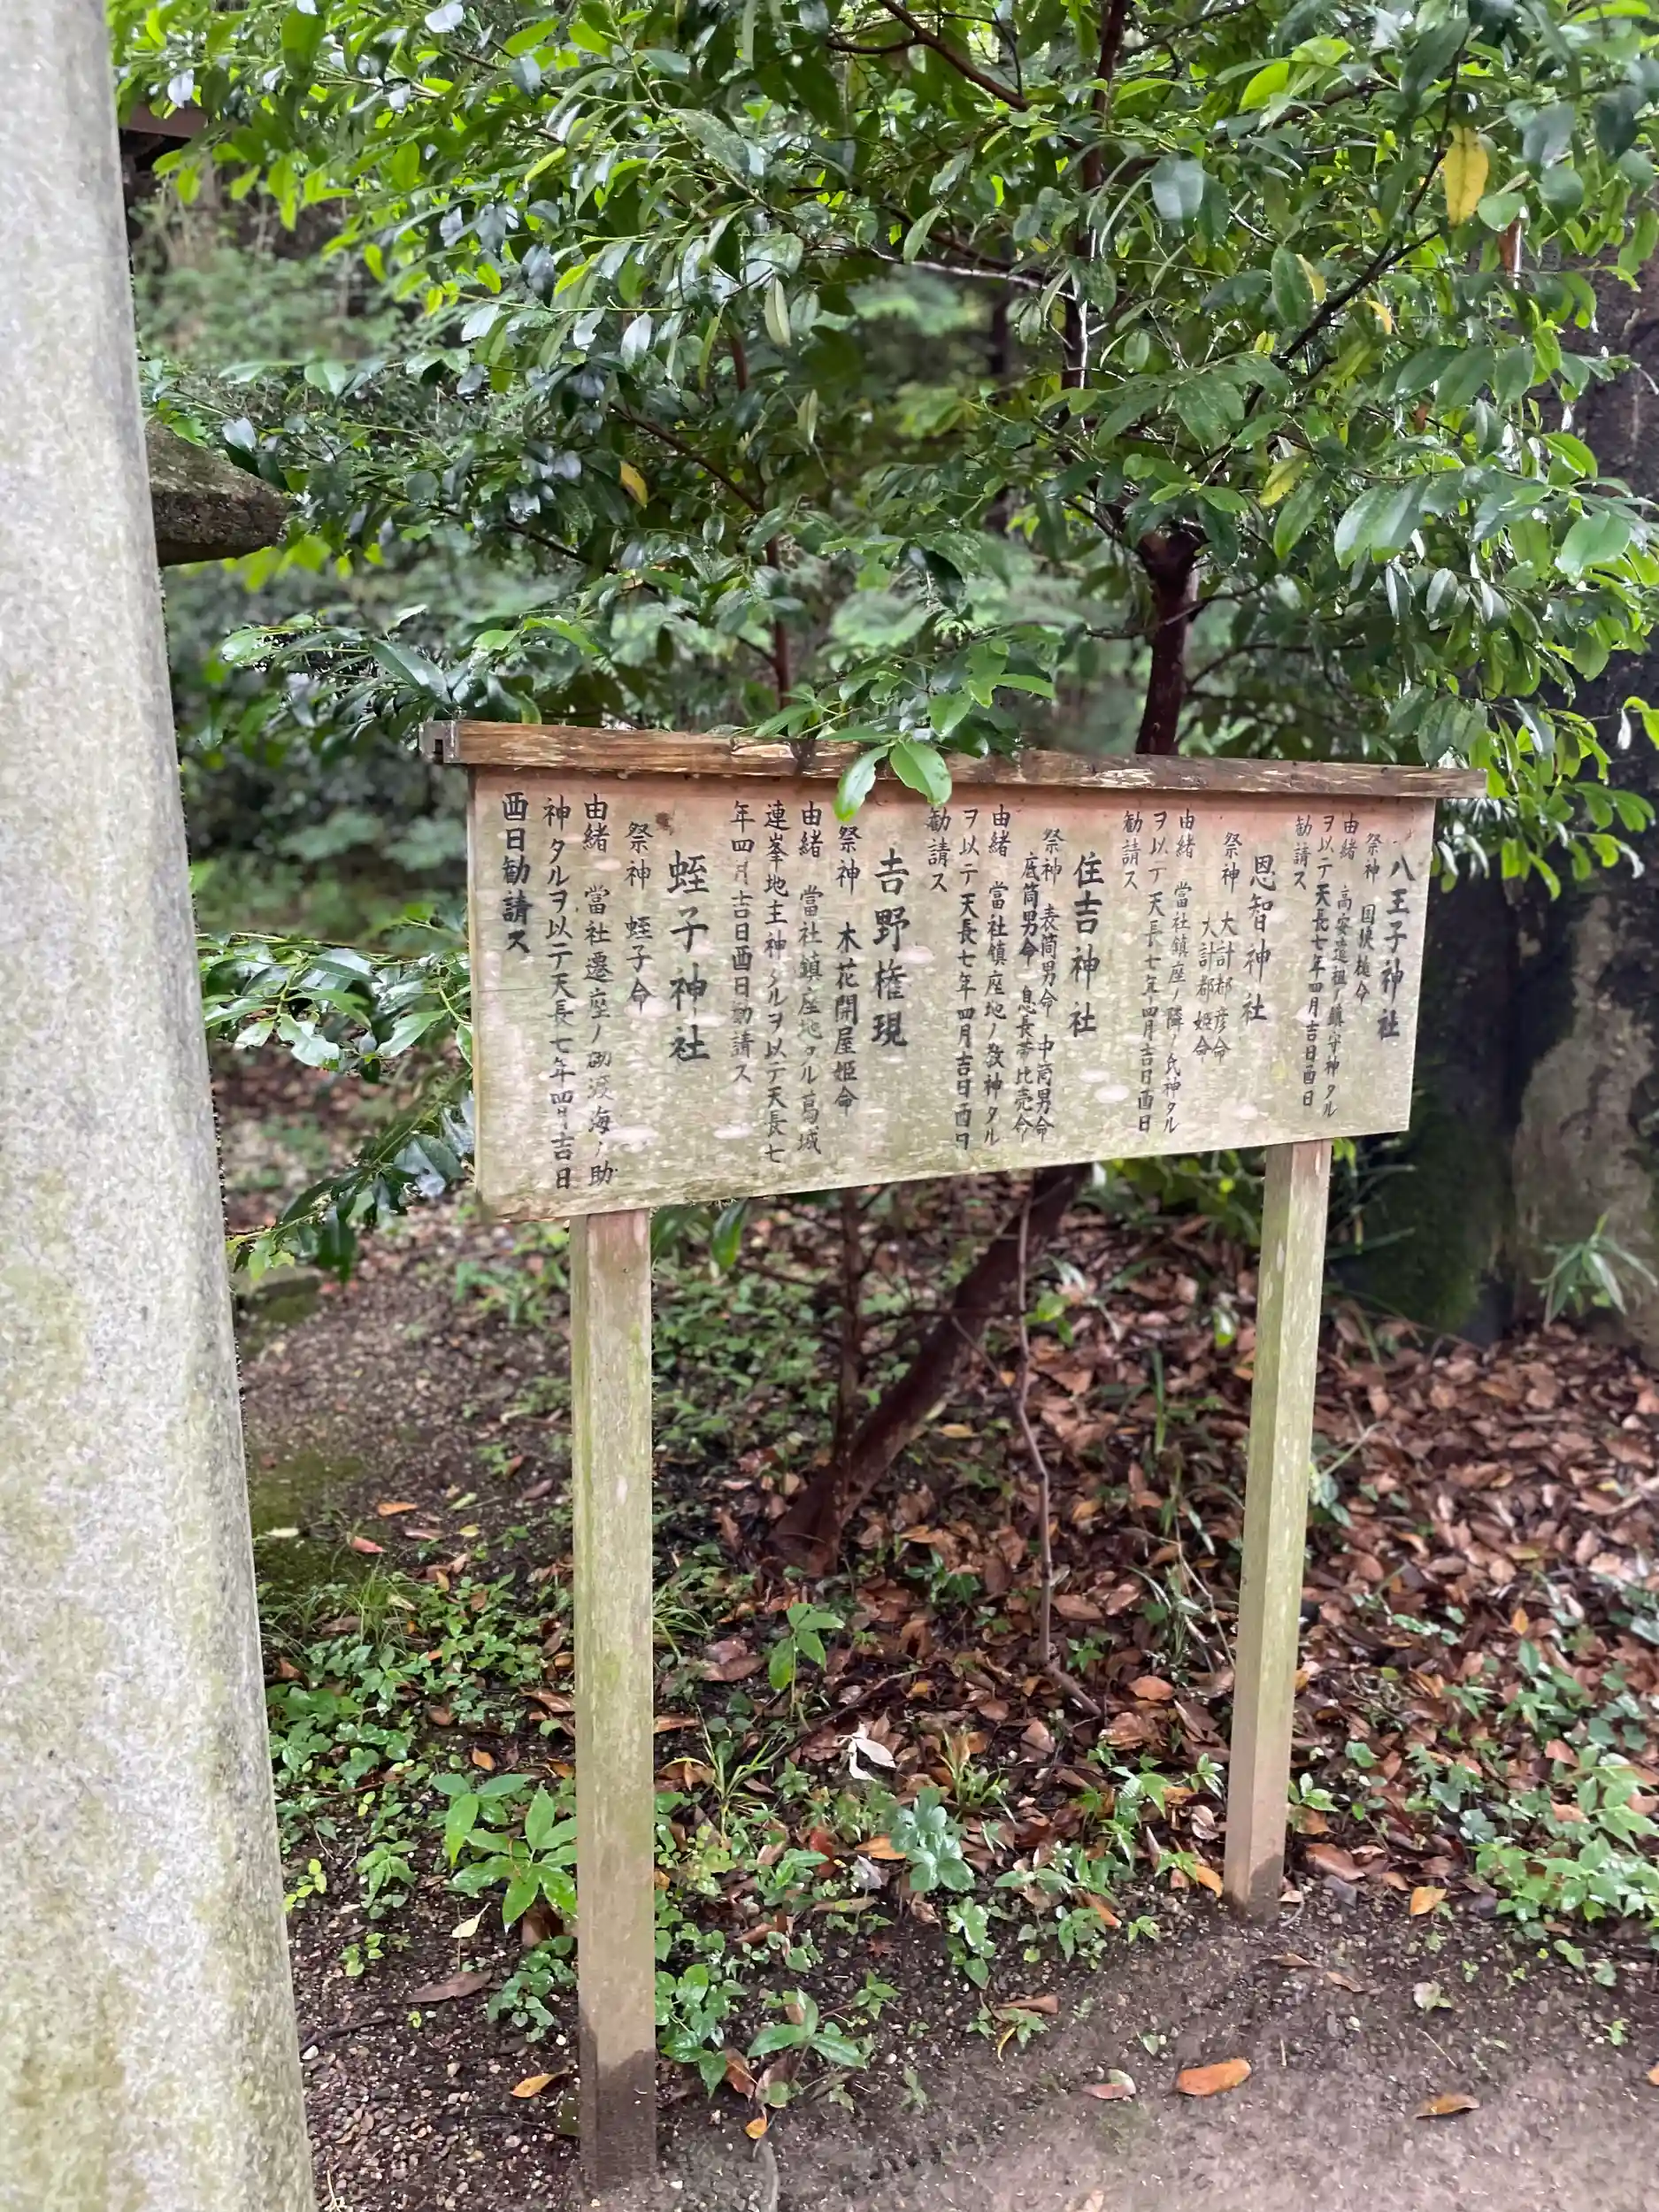 八王子神社
祭神　国狭槌命
由緒　高安遠祖ノ鎮守神タル
ヲ以テ天長七年四月吉日酉日
勧請ス
恩智神社
祭神　大計都彦命
大計都姫命
由緒　當社鎮座ノ隣ノ氏神タル
ヲ以テ天長七年四月吉日酉日
勧請ス
住吉神社
祭神　表筒男命　中筒男命
底筒男命　息長帯比売命
由緒　當社鎮座地ノ敬神タル
ヲ以テ天長七年四月吉日酉日
勧請ス
吉野権現
祭神　木花開屋姫命
由緒　當社鎮座地タル葛城
連峯地主神タルヲ以テ天長七
年四月吉日酉日勧請ス
蛭子神社
祭神　蛭子命
由緒　當社遷座ノ砌渡海ノ助
神タルヲ以テ天長七年四月吉日
酉日勧請ス